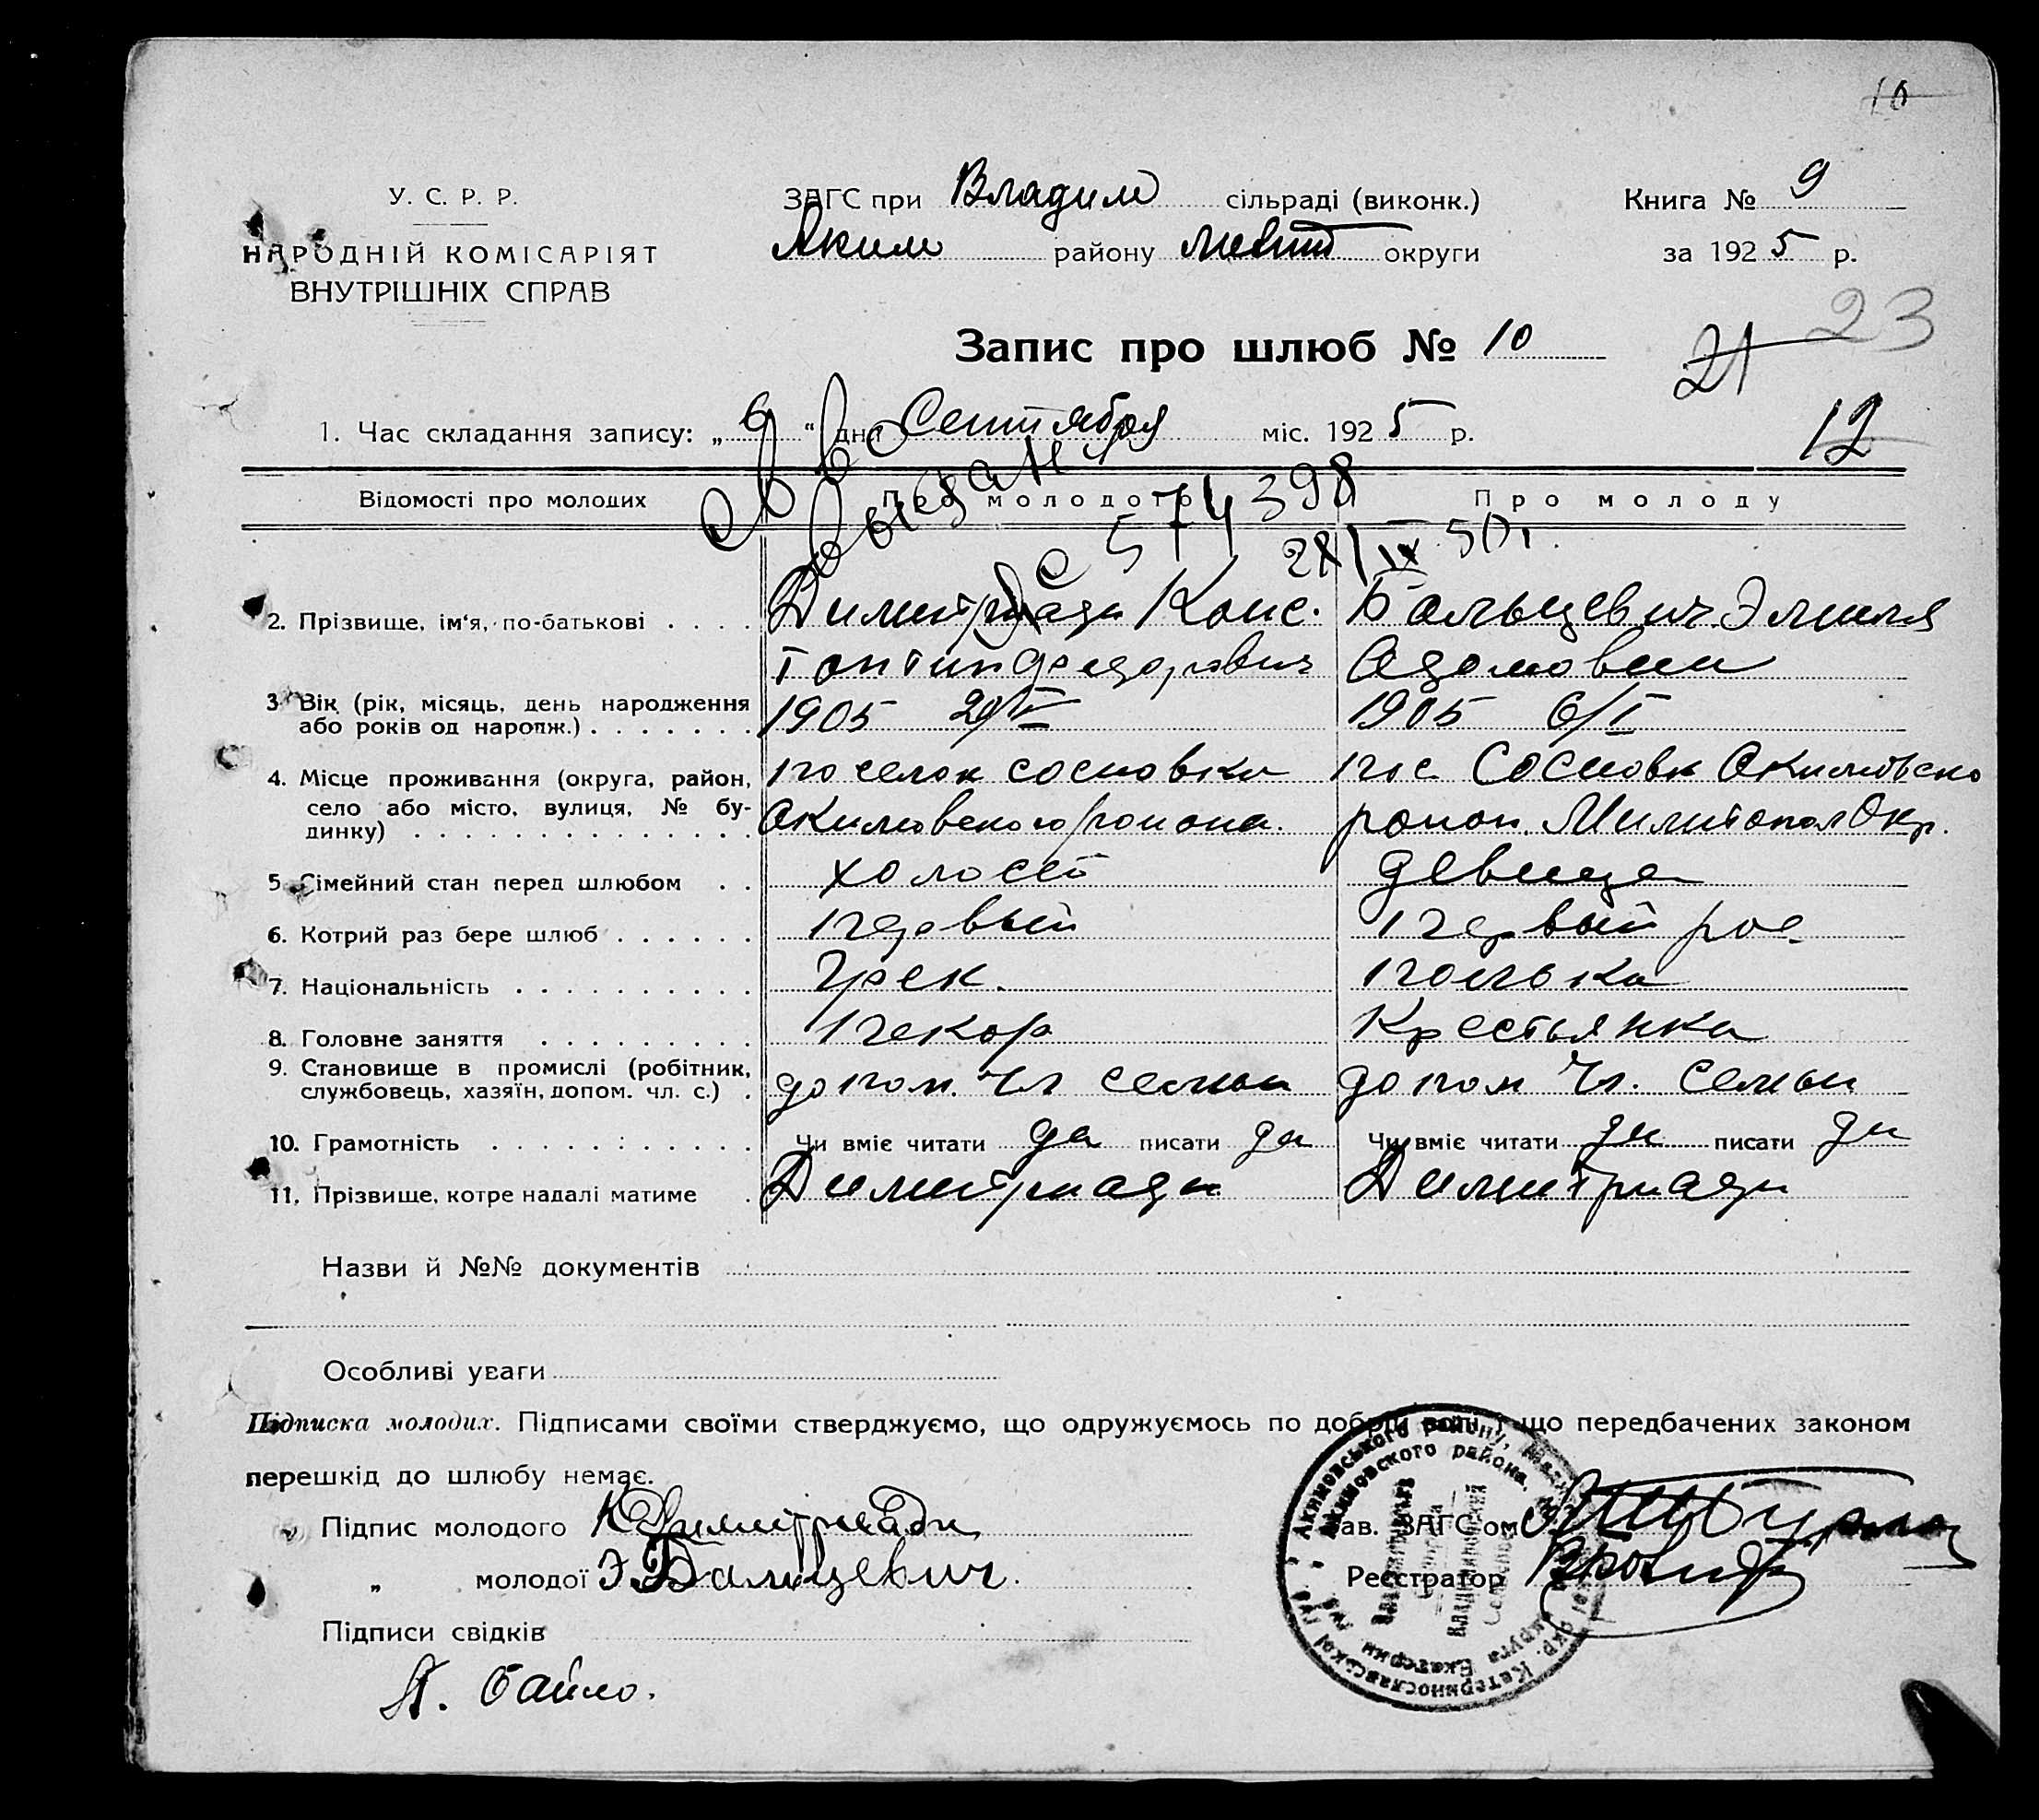 10
У. С. Р. Р.
НАРОДНІЙ КОМІСАРІЯТ
ВНУТРІШНІХ СПРАВ
ЗАГС при Владим сільраді (виконк.)
Аким району Мелит округи
Книга № 9
за 1925 р.
Запис про шлюб № 10
21
23
12
1. Час складання запису: „ 9 “ дня Сентября міс. 1925 р.
Відомості про молодих Про молодого Про молоду
574398
28/IX 50г.
2. Прізвище, ім'я, по-батькові . . . . Димитриади Конс. Бальцевич Эмиля
тонтин Федорович Адомовни
3. Вік (рік, місяць, день народження 1905 1905 6/I
або років од народж.) . . . . . . .
4. Місце проживання (округа, район, поселок сосновка пос Сосновк Акимовско
село або місто, вулиця, № бу- Акимовского района. район. Милитопол Окр.
динку) . . . . . . . . . . . . . .
5. Сімейний стан перед шлюбом . . холост девица
6. Котрий раз бере шлюб . . . . . . первый первый рос
7. Національність . . . . . . . . . . Грек. полька
8. Головне заняття . . . . . . . . . пекор Крестьянка
9. Становище в промислі (робітник, допом. чл семьи допом чл. семьи
службовець, хазяїн, допом. чл. с.) .
10. Грамотність . . . . . . . . . . . Чи вміє читати да писати да Чи вміє читати да писати да
11. Прізвище, котре надалі матиме . Димитриади Димитриади
Назви й №№ документів
Особливі уваги
Підписка молодих. Підписами своїми стверджуємо, що одружуємось по добрій волі і що передбачених законом
перешкід до шлюбу немає.
„ Підпис молодого КДимитриади
Зав. ЗАГС'ом
„ молодої Э.Бальцевич.
Реєстратор
Підписи свідків
А. Байло.